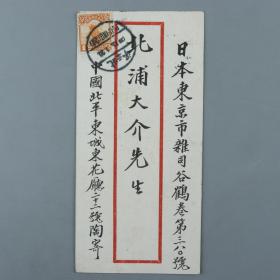 日本東京市雜司谷鶴卷第三八〇號
北浦大介先生
中國北平東城東花廳二十三號陶寄